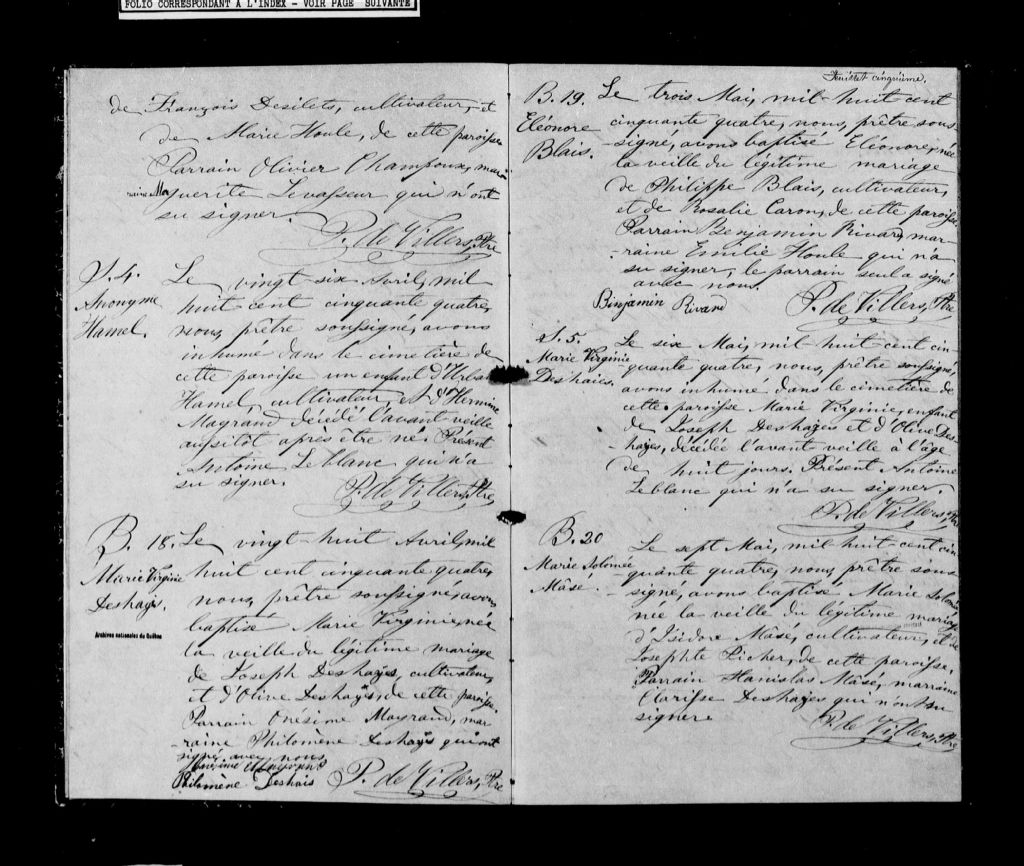 FOLIO CORRESPONDANT A L'INDEX - VOIR PAGE SUIVANTE
de François Desilets, cultivateur, et
de Marie Houle, de cette paroisse
Parrain Olivier Champoux, mar
raine Mar
guerite Levasseur qui n'ont
su signer.
P. de Villers, Ptre
S. 4.
Anonyme
Hamel.
Le vingt-six Avril, mil
huit cent cinquante quatre,
nous, prêtre soussigné, avons
inhumé dans le cimetière de
cette paroisse un enfant d'Urbain
Hamel, cultivateur, et d'Hermine
Magrand décédé l'avant veille
aussitôt après être né. Présent
Antoine Leblanc qui n'a
su signer.
P. de Villers, Ptre
B. 18.
Marie Virginie
Deshayes.
Le vingt-huit Avril, mil
huit cent cinquante quatre,
nous, prêtre soussigné, avons
baptisé Marie Virginie, née
la veille du légitime mariage
de Joseph Deshayes, cultivateur,
et d'Olive Deshayes, de cette paroisse.
Parrain Onésime Magrand, mar
-raine Philomène Deshayes qui ont
signé avec nous
Philomène Deshais P. de Villers, Ptre
Archives nationales du Québec
Feuillet cinquième.
B. 19.
Eléonore
Blais.
Le trois Mai, mil-huit cent
cinquante quatre, nous, prêtre sous-
-signé, avons baptisé Eléonore, née
la veille du légitime mariage
de Philippe Blais, cultivateur,
et de Rosalie Caron, de cette paroisse.
Parrain Benjamin Rivard, mar-
-raine Emilie Houle qui n'a
su signer, le parrain seul a signé
avec nous.
Binjamin Rivard P. de Villers, Ptre
S. 5.
Marie Virginie
Deshaies.
Le six Mai, mil-huit-cent cin
quante quatre, nous, prêtre soussigné,
avons inhumé dans le cimetière de
cette paroisse Marie Virginie, enfant
de Joseph Deshayes et d'Olive Des-
hayes, décédée l'avant veille à l'âge
de huit jours. Présent Antoine
Leblanc qui n'a su signer.
P. de Villers, Ptre
B. 20
Marie Solomée
Mâsé.
Le sept Mai, mil-huit cent cin
quante quatre, nous, prêtre sous
signé, avons baptisé Marie Solomée
née la veille du légitime mariage
d'Isidore Mâsé, cultivateur, et de
Josephte Picher, de cette paroisse.
Parrain Stanislas Mâsé, marraine
Clarisse Deshayes qui n'ont su
signer.
P. de Villers, Ptre